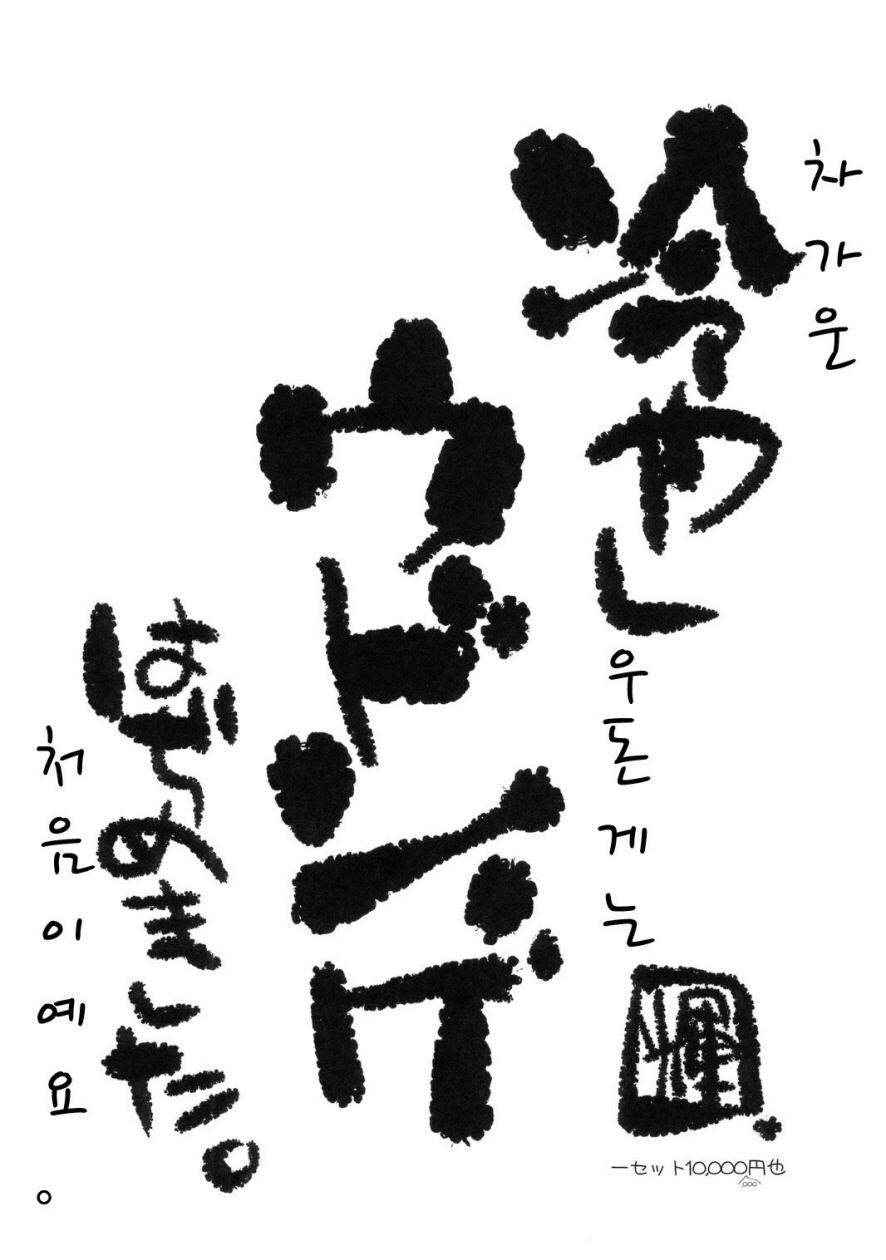 차가운
冷やし
우돈게는
ウドンゲ
はじめました。
처음이예요。
一セット10,000円也
000